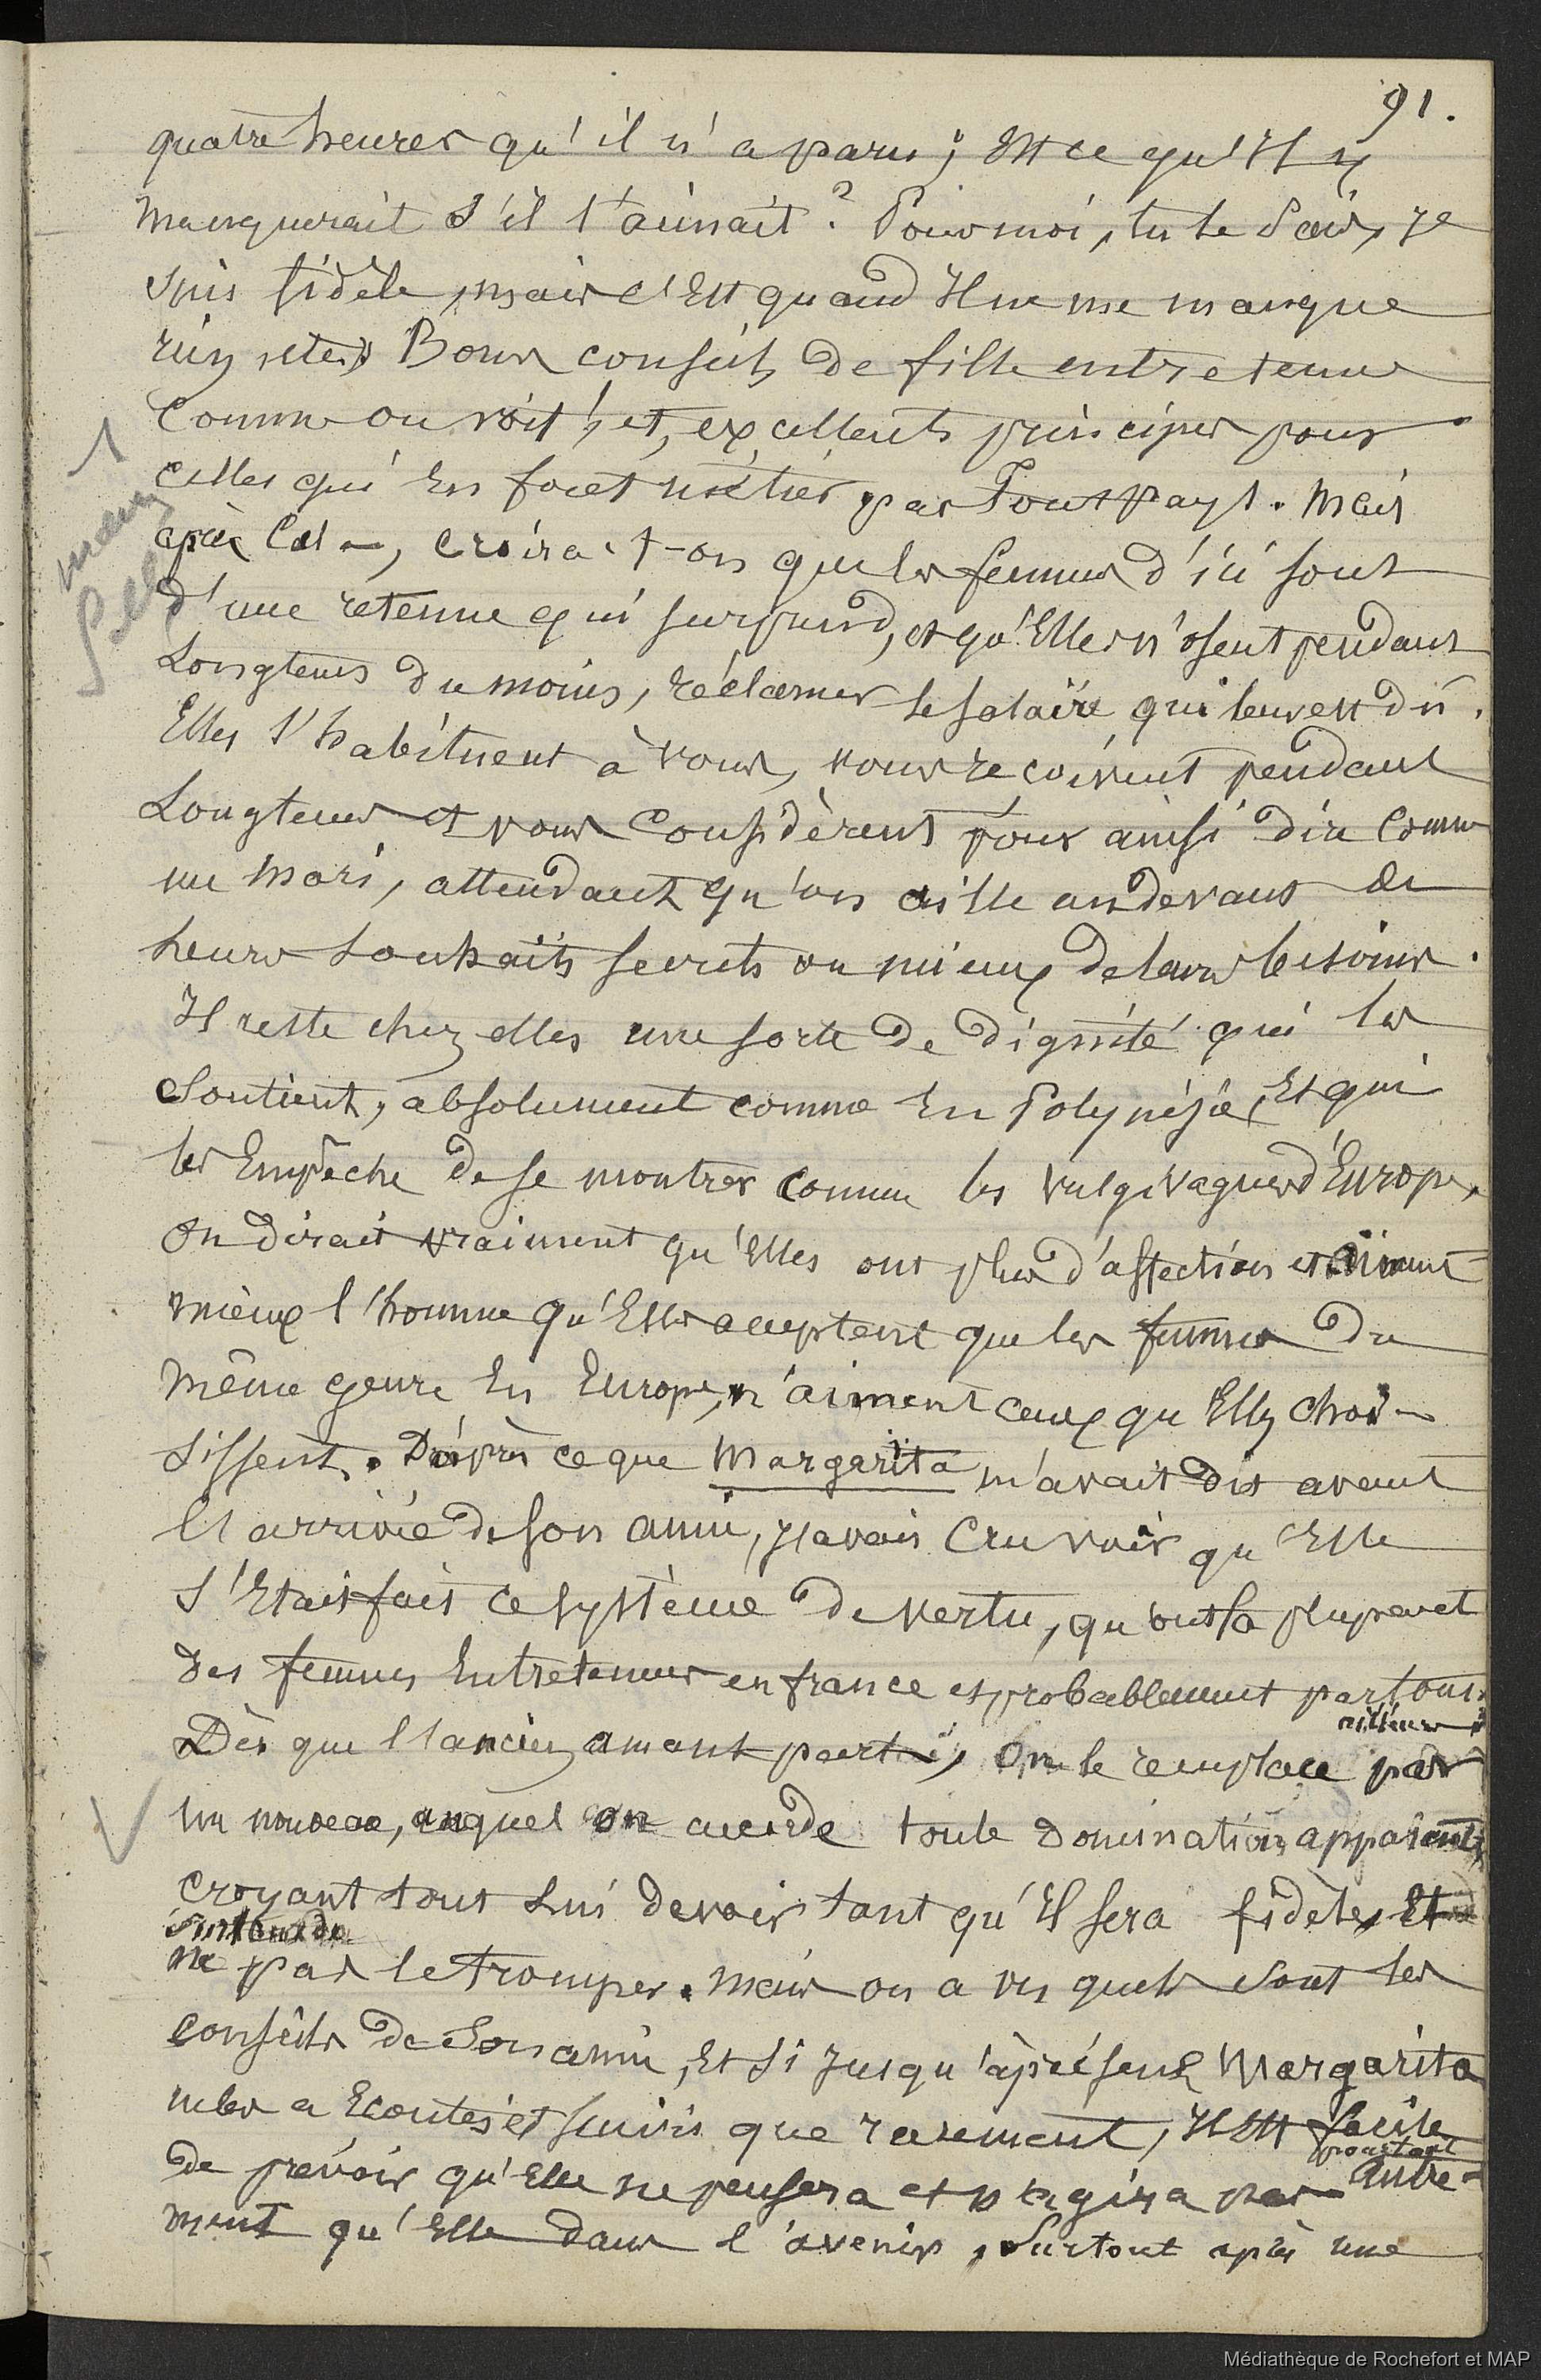 91.
quatre heures qu'il n'a paru; Est ce qu'Il y
manquerait s'il t'aimait? Pour moi, tu le sais, je
suis fidèle, mais c'Est quand Il ne me manque
rien, etc.» Bons conseils de fille entretenue
Comme on voit!, et, excellents principes pour
celles qui En font métier par Tout pays. Mais
après Cela, croira-t-on que les femmes d'ici sont
d'une retenue qui surprend, et qu'Elles n'osent pendant
Longtems du moins, réclamer le salaire qui leur est dû.
Elles s'habituent à vous, vous reçoivent pendant
Longtems et vous Considèrent pour ainsi dire Comme
un mari, attendant qu'on aille au devant de
leurs souhaits secrets ou mieux de leurs besoins.
Il reste chez elles une sorte de dignité qui les
Soutient, absolument comme En Polynésie, Et qui
les Empêche de se montrer comme les vulgivagues d'Europe,
On dirait vraiment qu'Elles ont plus d'affection et aiment
mieux l'homme qu'Elles acceptent que les femmes du
même genre En Europe, n'aiment ceux qu'Elles choi-
sissent. D'après ce que Margarita m'avait dit avant
l'arrivée de son amie, j'avais Cru voir qu'Elle
s'Etait fait ce système de vertu, qu'ont la plupart
des femmes Entretenues en france et probablement partout
ailleurs.
Dès que l'ancien amant parti, on le remplace par
un nouveau, auquel on accorde toute domination apparente,
croyant tout Lui devoir tant qu'Il sera fidèle, Et
surtout de
ne pas le tromper. Mais on a vu quels sont les
conseils de Son amie, Et si jusqu'à présent Margarita
ne les a Ecoutés et suivis que rarement, Il Est facile
pourtant
de prévoir qu'Elle ne pensera et n'agira pas autre-
ment qu'Elle dans l'avenir, Surtout après une
Médiathèque de Rochefort et MAP